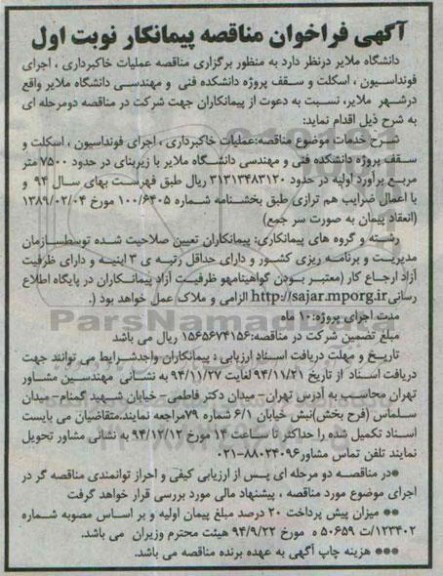 آگهی فراخوان مناقصه پیمانکار نوبت اول
دانشگاه ملایر درنظر دارد به منظور برگزاری مناقصه عملیات خاکبرداری ، اجرای
فونداسیون ، اسکلت و سقف پروژه دانشکده فنی و مهندسی دانشگاه ملایر واقع
درشهر ملایر، نسبت به دعوت از پیمانکاران جهت شرکت در مناقصه دومرحله ای
به شرح ذیل اقدام نماید:
شرح خدمات موضوع مناقصه:عملیات خاکبرداری ، اجرای فونداسیون ، اسکلت و
سقف پروژه دانشکده فنی و مهندسی دانشگاه ملایر با زیربنای در حدود ۷۵۰۰ متر
مربع برآورد اولیه در حدود ۳۱۳۱۳۴۸۳۱۲۰ ریال طبق فهرست بهای سال ۹۴ و
با اعمال ضرایب هم ترازی طبق بخشنامه شماره ۱۰۰/۶۴۰۵ مورخ ۱۳۸۹/۰۲/۰۴
(انعقاد پیمان به صورت سر جمع)
رشته و گروه های پیمانکاری: پیمانکاران تعیین صلاحیت شده توسطسازمان
مدیریت و برنامه ریزی کشور و دارای حداقل رتبه ی ۳ ابنیه و دارای ظرفیت
آزاد ارجاع کار (معتبر بودن گواهینامهو ظرفیت آزاد پیمانکاران در پایگاه اطلاع
رسانیhttp://sajar.mporg.ir الزامی و ملاک عمل خواهد بود ).
ParsNamadData
مدت اجرای پروژه:۱۰ ماه
مبلغ تضمین شرکت در مناقصه:۱۵۶۵۶۷۴۱۵۶ ریال می باشد
تاریخ و مهلت دریافت اسناد ارزیابی : پیمانکاران واجدشرایط می توانند جهت
دریافت اسناد از تاریخ ۹۴/۱۱/۲۱ لغایت ۹۴/۱۱/۲۷ به نشانی مهندسین مشاور
تهران محاسب به آدرس تهران-میدان دکتر فاطمی- خیابان شهید گمنام- میدان
سلماس (فرح بخش)نبش خیابان ۶/۱ شماره ۷۹مراجعه نمایند.متقاضیان می بایست
اسناد تکمیل شده را حداکثر تا ساعت ۱۴ مورخ ۹۴/۱۲/۱۲ به نشانی مشاور تحویل
نمایند تلفن تماس مشاور۸۸۰۲۴۰۹۶-۰۲۱
*در مناقصه دو مرحله ای پس از ارزیابی کیفی و احراز توانمندی مناقصه گر در
اجرای موضوع مورد مناقصه ، پیشنهاد مالی مورد بررسی قرار خواهد گرفت
** میزان پیش پرداخت ۲۰ درصد مبلغ پیمان اولیه و بر اساس مصوبه شماره
۱۲۳۴۰۲/ت ۵۰۶۵۹ ه مورخ ۹۴/۹/۲۲ هیئت محترم وزیران می باشد.
*** هزینه چاپ آگهی به عهده برنده مناقصه می باشد.